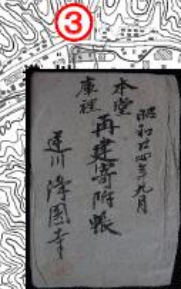 ③
昭和廿四年九月
本堂
庫裡
再建寄附帳
蓮川 隆国寺